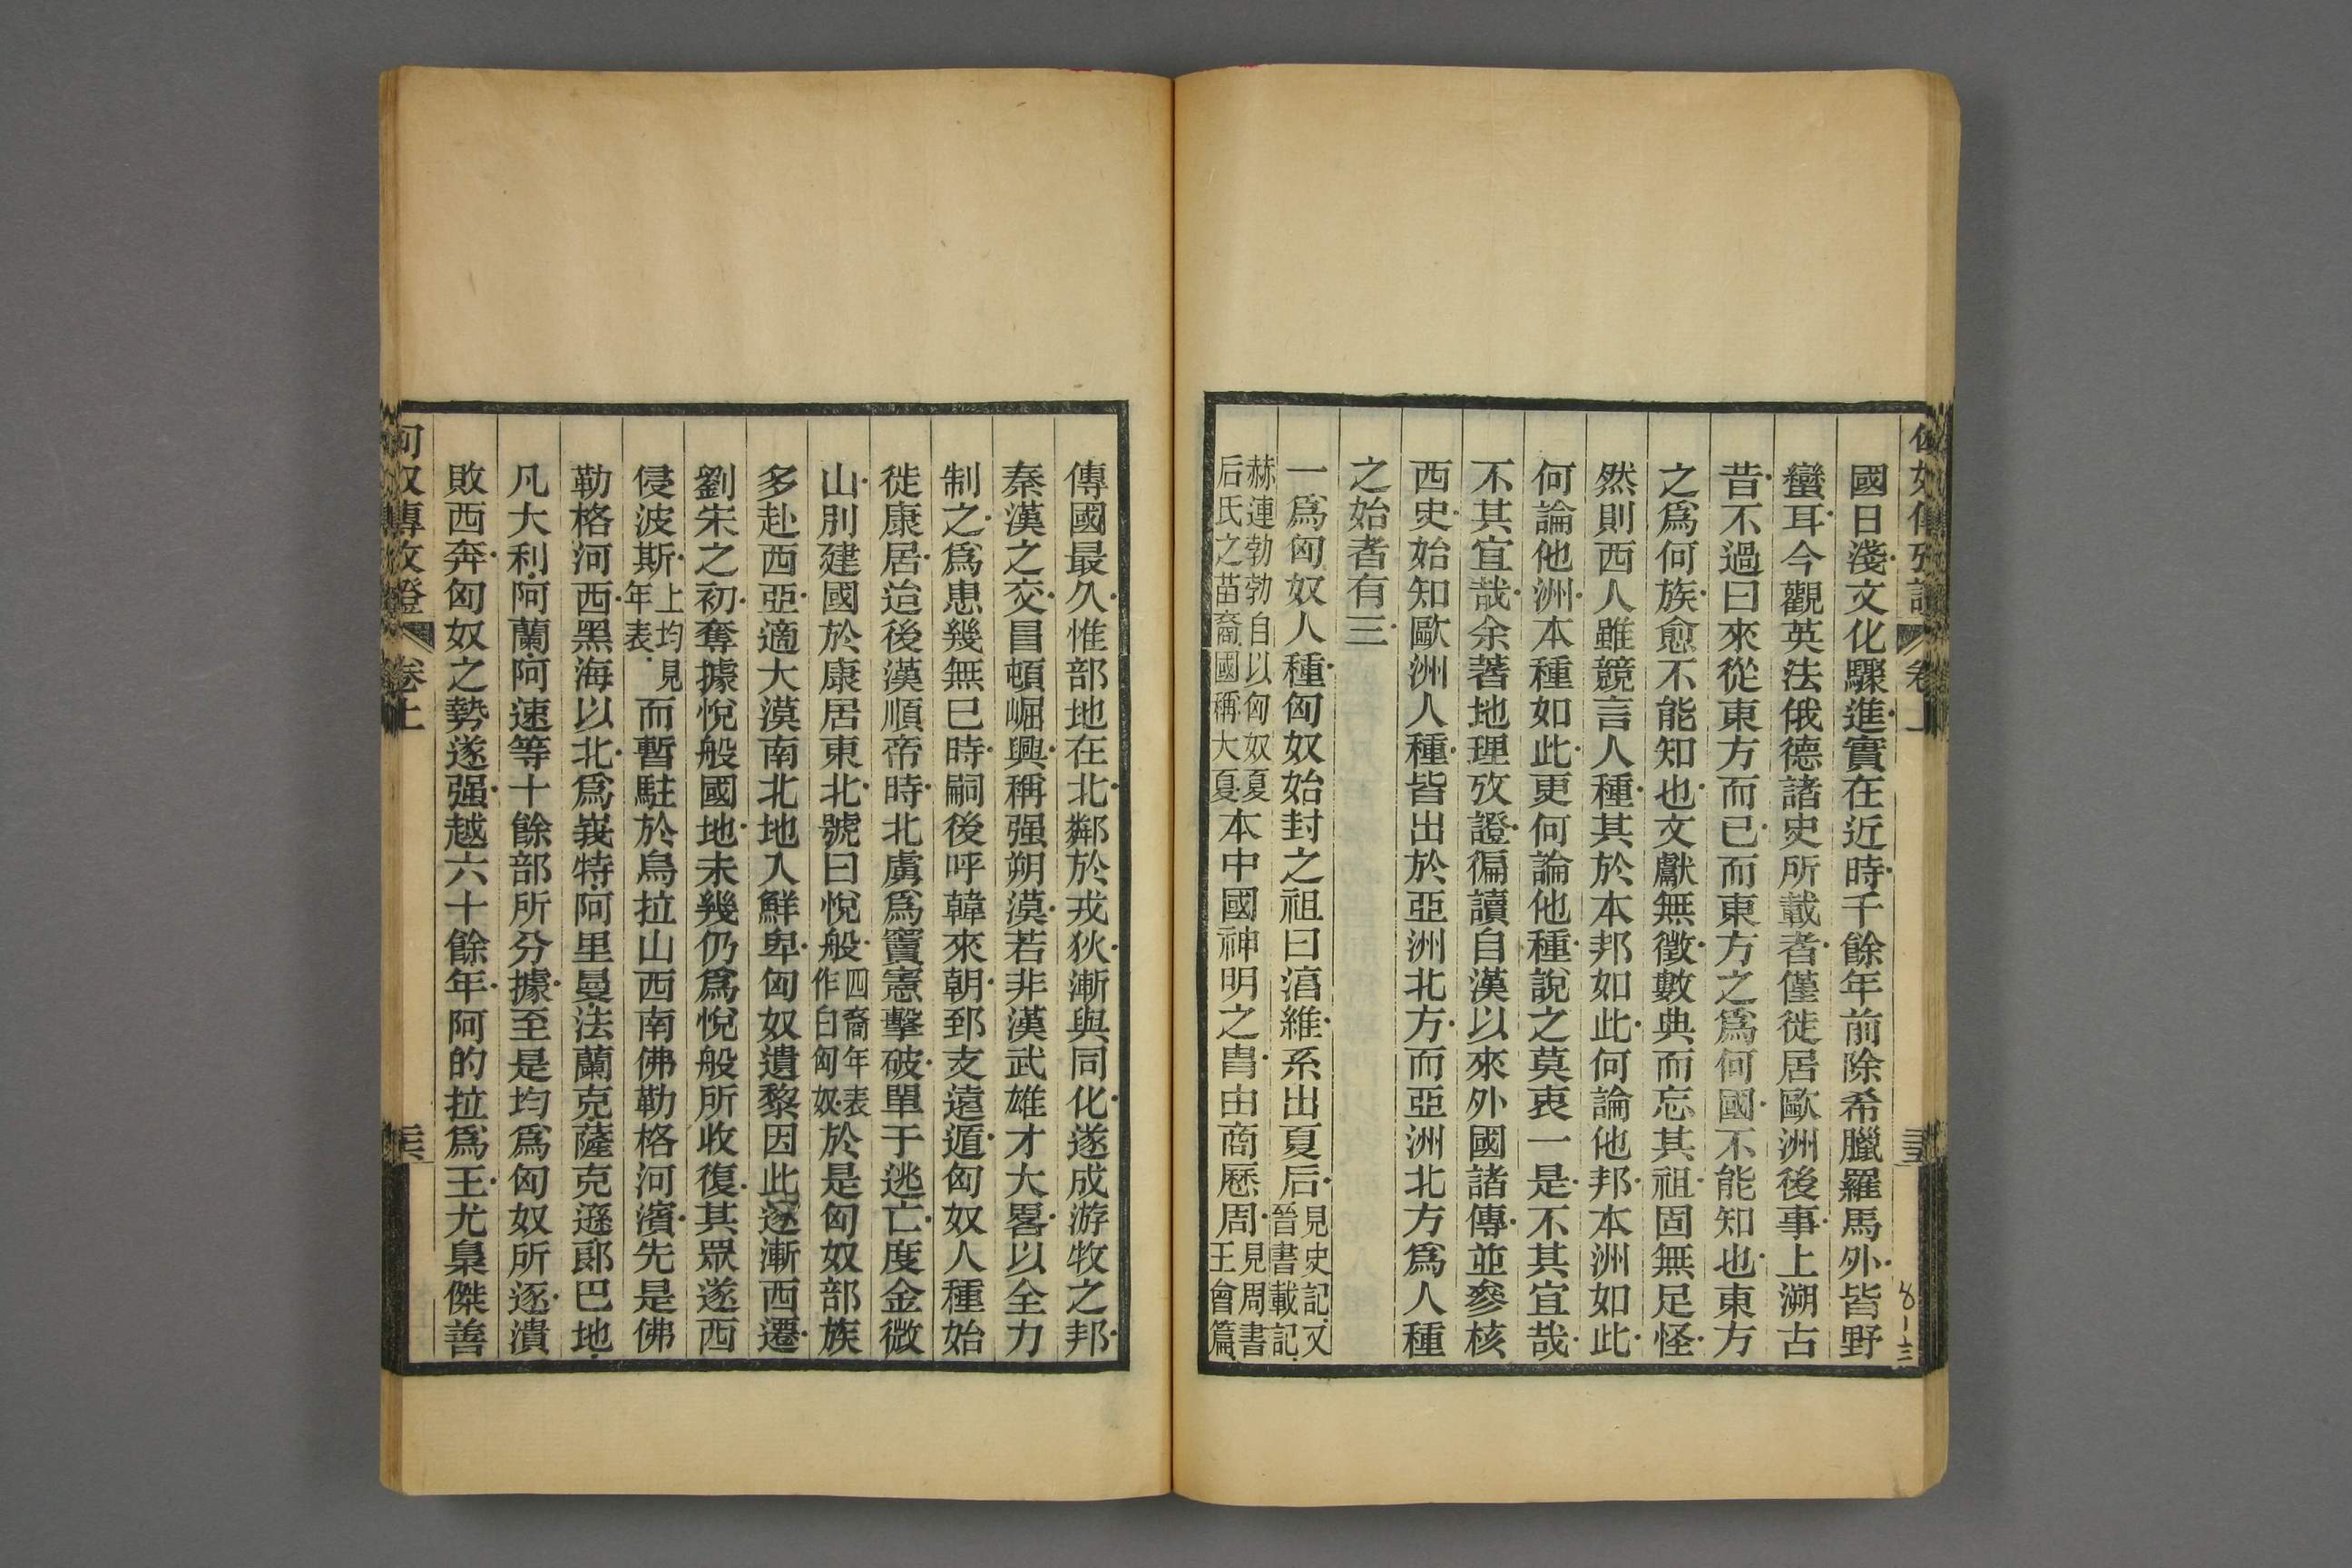 國日淺文化驟進實在近時千餘年前除希臘羅馬外皆野
蠻耳今觀英法俄德諸史所載者僅徙居歐洲後事上溯古
昔不過曰來從東方而已而東方之爲何國不能知也東方
之爲何族愈不能知也文獻無徵數典而忘其祖固無足怪
然則西人雖競言人種其於本邦如此何論他邦本洲如此
何論他洲本種如此更何論他種說之莫衷一是不其宜哉
不其宜哉余著地理攷證徧讀自漢以來外國諸傳並參核
西史始知歐洲人種皆出於亞洲北方而亞洲北方爲人種
之始者有三
一爲匈奴人種匈奴始封之祖曰淳維系出夏后見史記又晉書載記
赫連勃勃自以匈奴夏后氏之苗裔國稱大夏本中國神明之冑由商歷周見周書王會篇
傳國最久惟部地在北鄰於戎狄漸與同化遂成游牧之邦
秦漢之交冒頓崛興稱强朔漠若非漢武雄才大畧以全力
制之爲患幾無已時嗣後呼韓來朝郅支遠遁匈奴人種始
徙康居迨後漢順帝時北虜爲竇憲擊破單于逃亡度金微
山別建國於康居東北號曰悅般四裔年表作白匈奴於是匈奴部族
多赴西亞適大漠南北地入鮮卑匈奴遺黎因此逐漸西遷
劉宋之初奪據悅般國地未幾仍爲悅般所收復其眾遂西
侵波斯上均見年表而暫駐於烏拉山西南佛勒格河濱先是佛
勒格河西黑海以北爲峩特阿里曼法蘭克薩克遜郞巴地
凡大利阿蘭阿速等十餘部所分據至是均爲匈奴所逐潰
敗西奔匈奴之勢遂强越六十餘年阿的拉爲王尤梟傑善
匈奴傳攷證 卷上